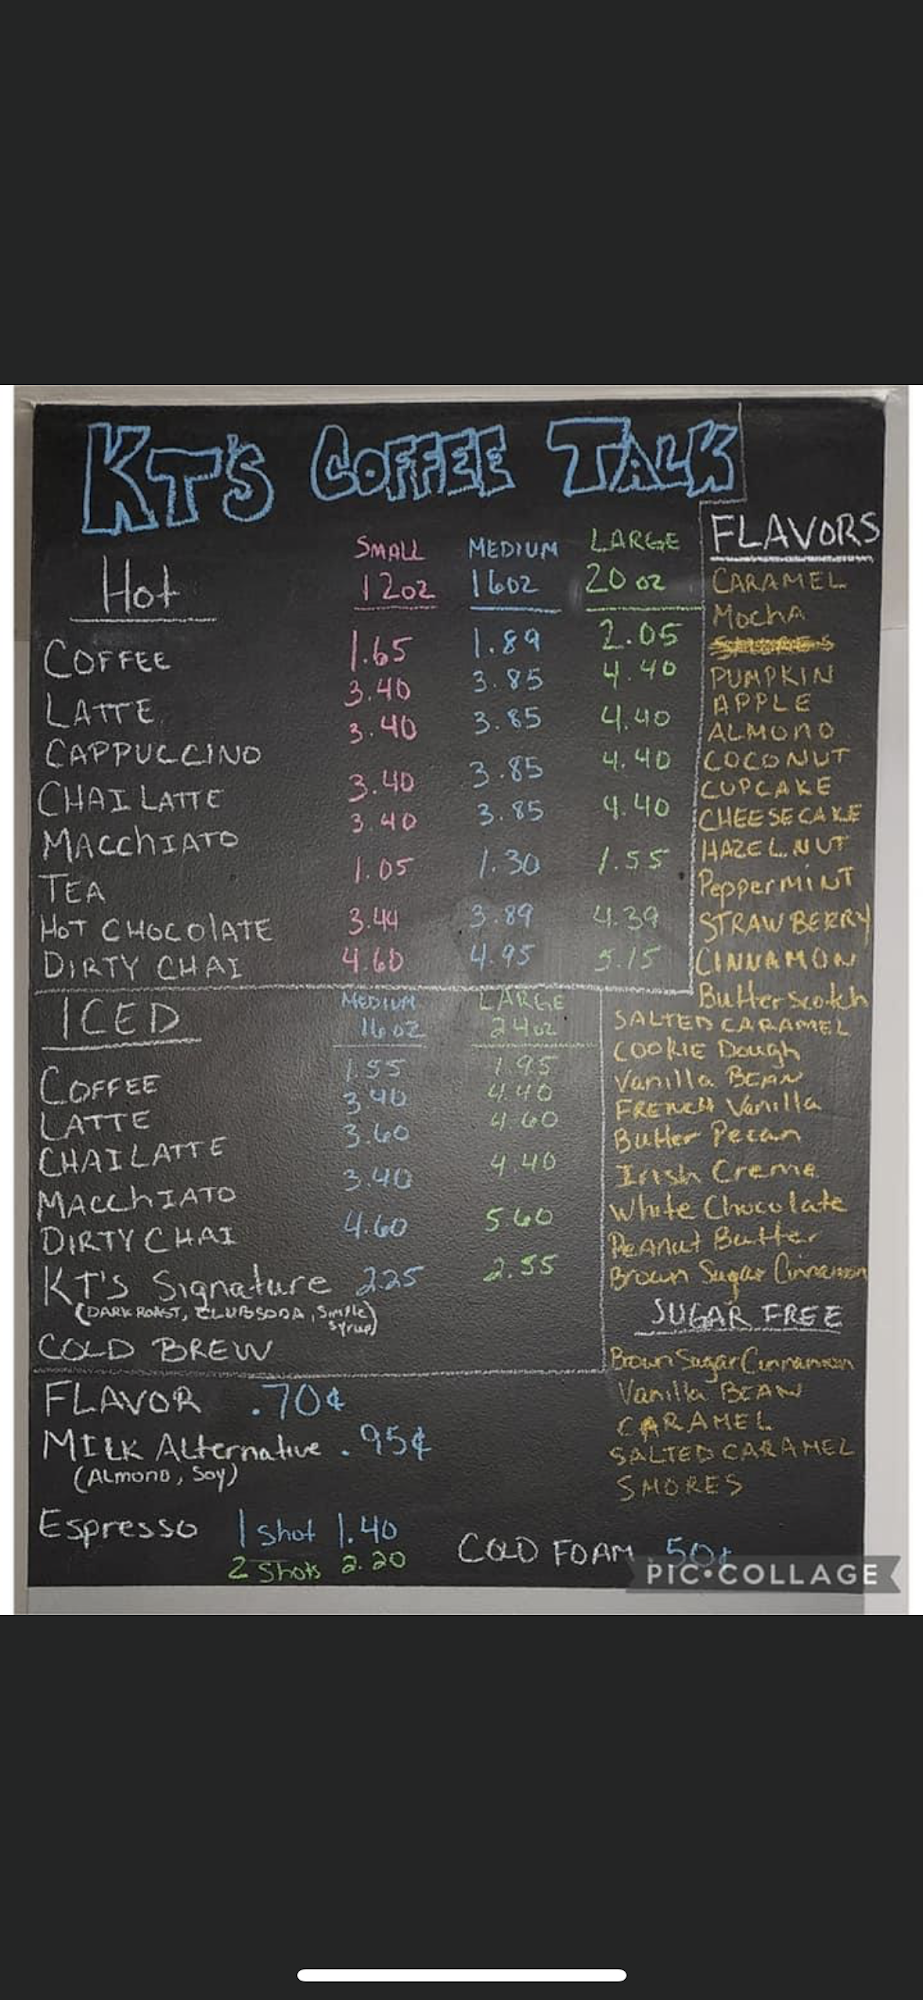 KT'S COFFEE TALK
SMALL MEDIUM LARGE
Hot 12oz 16oz 20oz
COFFEE 1.65 1.89 2.05
LATTE 3.40 3.85 4.40
CAPPUCCINO 3.40 3.85 4.40
CHAI LATTE 3.40 3.85 4.40
MACChIATO 3.40 3.85 4.40
TEA 1.05 1.30 1.55
HOT CHOCOLATE 3.44 3.89 4.39
DIRTY CHAI 4.60 4.95 5.15
ICED MEDIUM LARGE
16oz 24oz
COFFEE 1.55 1.95
LATTE 3.40 4.40
CHAI LATTE 3.60 4.60
MACChIATO 3.40 4.40
DIRTY CHAI 4.60 5.60
KT'S Signature 2.25 2.55
(DARK ROAST, CLUB SODA, Simple
Syrup)
COLD BREW
FLAVOR .70¢
MILK Alternative .95¢
(Almond, Soy)
Espresso 1 shot 1.40
2 shots 2.20
COLD FOAM .50¢
FLAVORS
CARAMEL
MochA
PUMPKIN
APPLE
ALMOND
COCONUT
CUPCAKE
CHEESECAKE
HAZELNUT
PepperMINT
STRAWBERRY
CINNAMON
Butterscotch
SALTED CARAMEL
COOKIE Dough
Vanilla BEAN
FRENCH Vanilla
Butter Pecan
Irish Creme
White Chocolate
PeANut Butter
Brown Sugar Cinnamon
SUGAR FREE
Brown Sugar Cinnamon
Vanilla BEAN
CARAMEL
SALTED CARAMEL
SMORES
PIC•COLLAGE